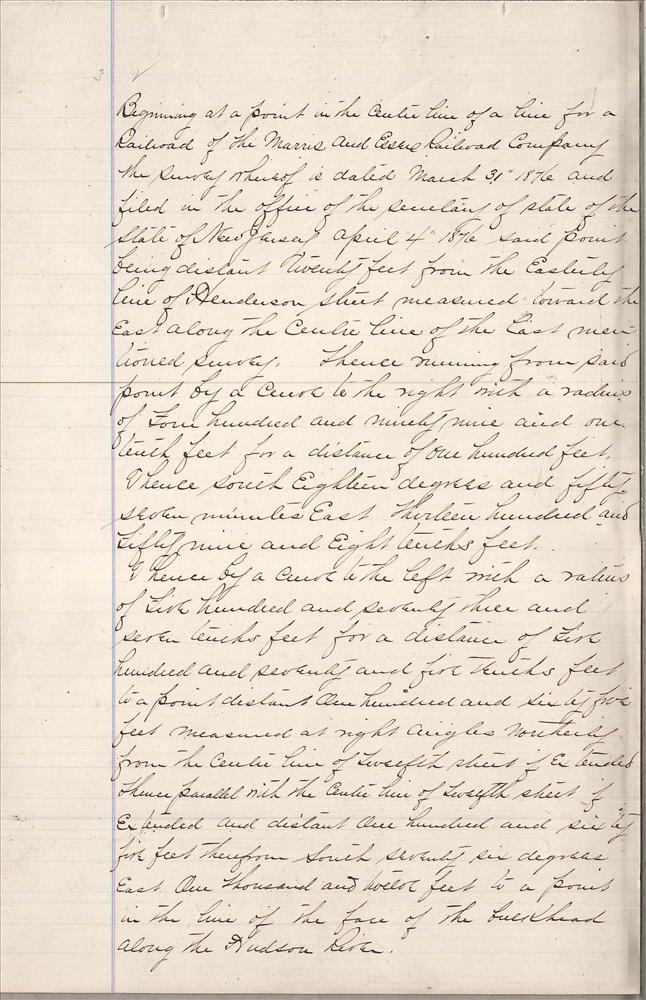 3 ✓
Beginning at a point in the Centre line of a line for a
Railroad of the Morris and Essex Railroad Company
the survey whereof is dated March 31" 1876 and
filed in the office of the secretary of state of the
State of New Jersey April 4" 1876 said point
being distant Twenty feet from the Easterly
line of Henderson street measured toward the
East along the Centre line of the last men
tioned survey. Thence running from said
point by a curve to the right with a radius
of Four hundred and ninety nine and one
tenth feet for a distance of One hundred feet.
Thence South Eighteen degrees and fifty
seven minutes East Thirteen hundred and
Fifty nine and Eight tenths feet.
Thence by a curve to the left with a radius
of Five hundred and seventy three and
seven tenths feet for a distance of Five
hundred and seventy and five tenths feet
to a point distant One hundred and sixty five
feet measured at right angles Northerly
from the Centre line of Twelfth street if Extended
thence parallel with the Centre line of Twelfth street if
Extended and distant One hundred and sixty
five feet therefrom South seventy six degrees
East One thousand and twelve feet to a point
in the line of the face of the bulkhead
along the Hudson River.